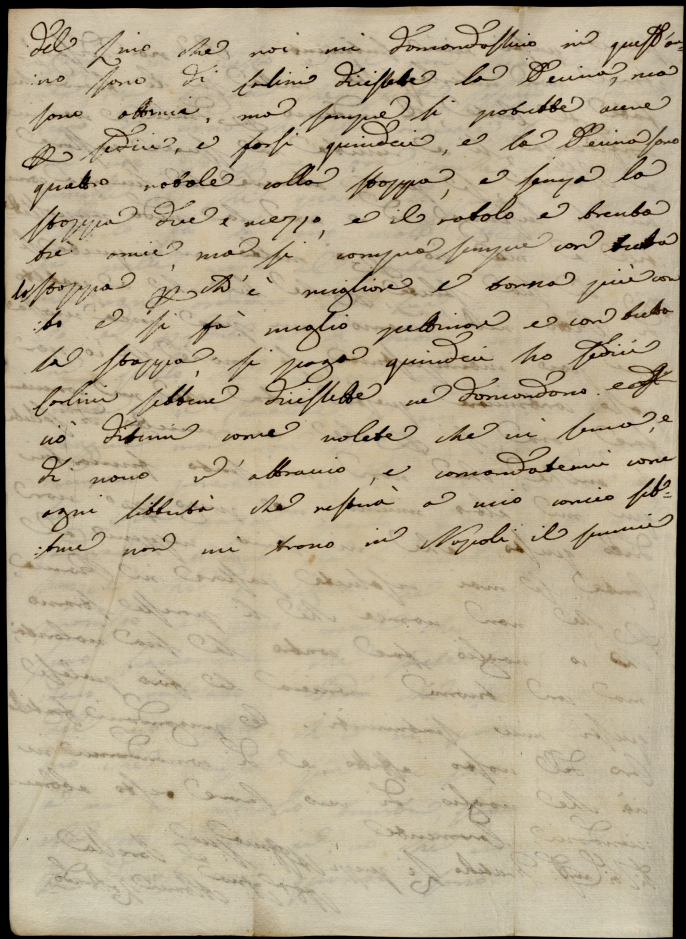 del lino che noi mi domandassivo in quest'an=
no sono di Carlini diciesette la Decina, ma
sono ottima, ma sempre si potrebbe avere
sedici, e forsi quindici, e la Decina sono
quattro rotole colla stoppa, e senza la
stoppa due e mezzo, e il rotolo e trenta
tre oncie, ma si compra sempre con tutta
la stoppa, ch'è migliore e torna più con
to e si fà meglio pettinare e con tutta
la stoppa, si paga quindici ho sedici
Carlini sebbene diciesette ne domandono.
ciò ditemi come volete che vi serva, e
di novo v'abbraccio, e comandatemi con
ogni libbertà che resterà a mio carico seb=
bene non mi trovo in Napoli il